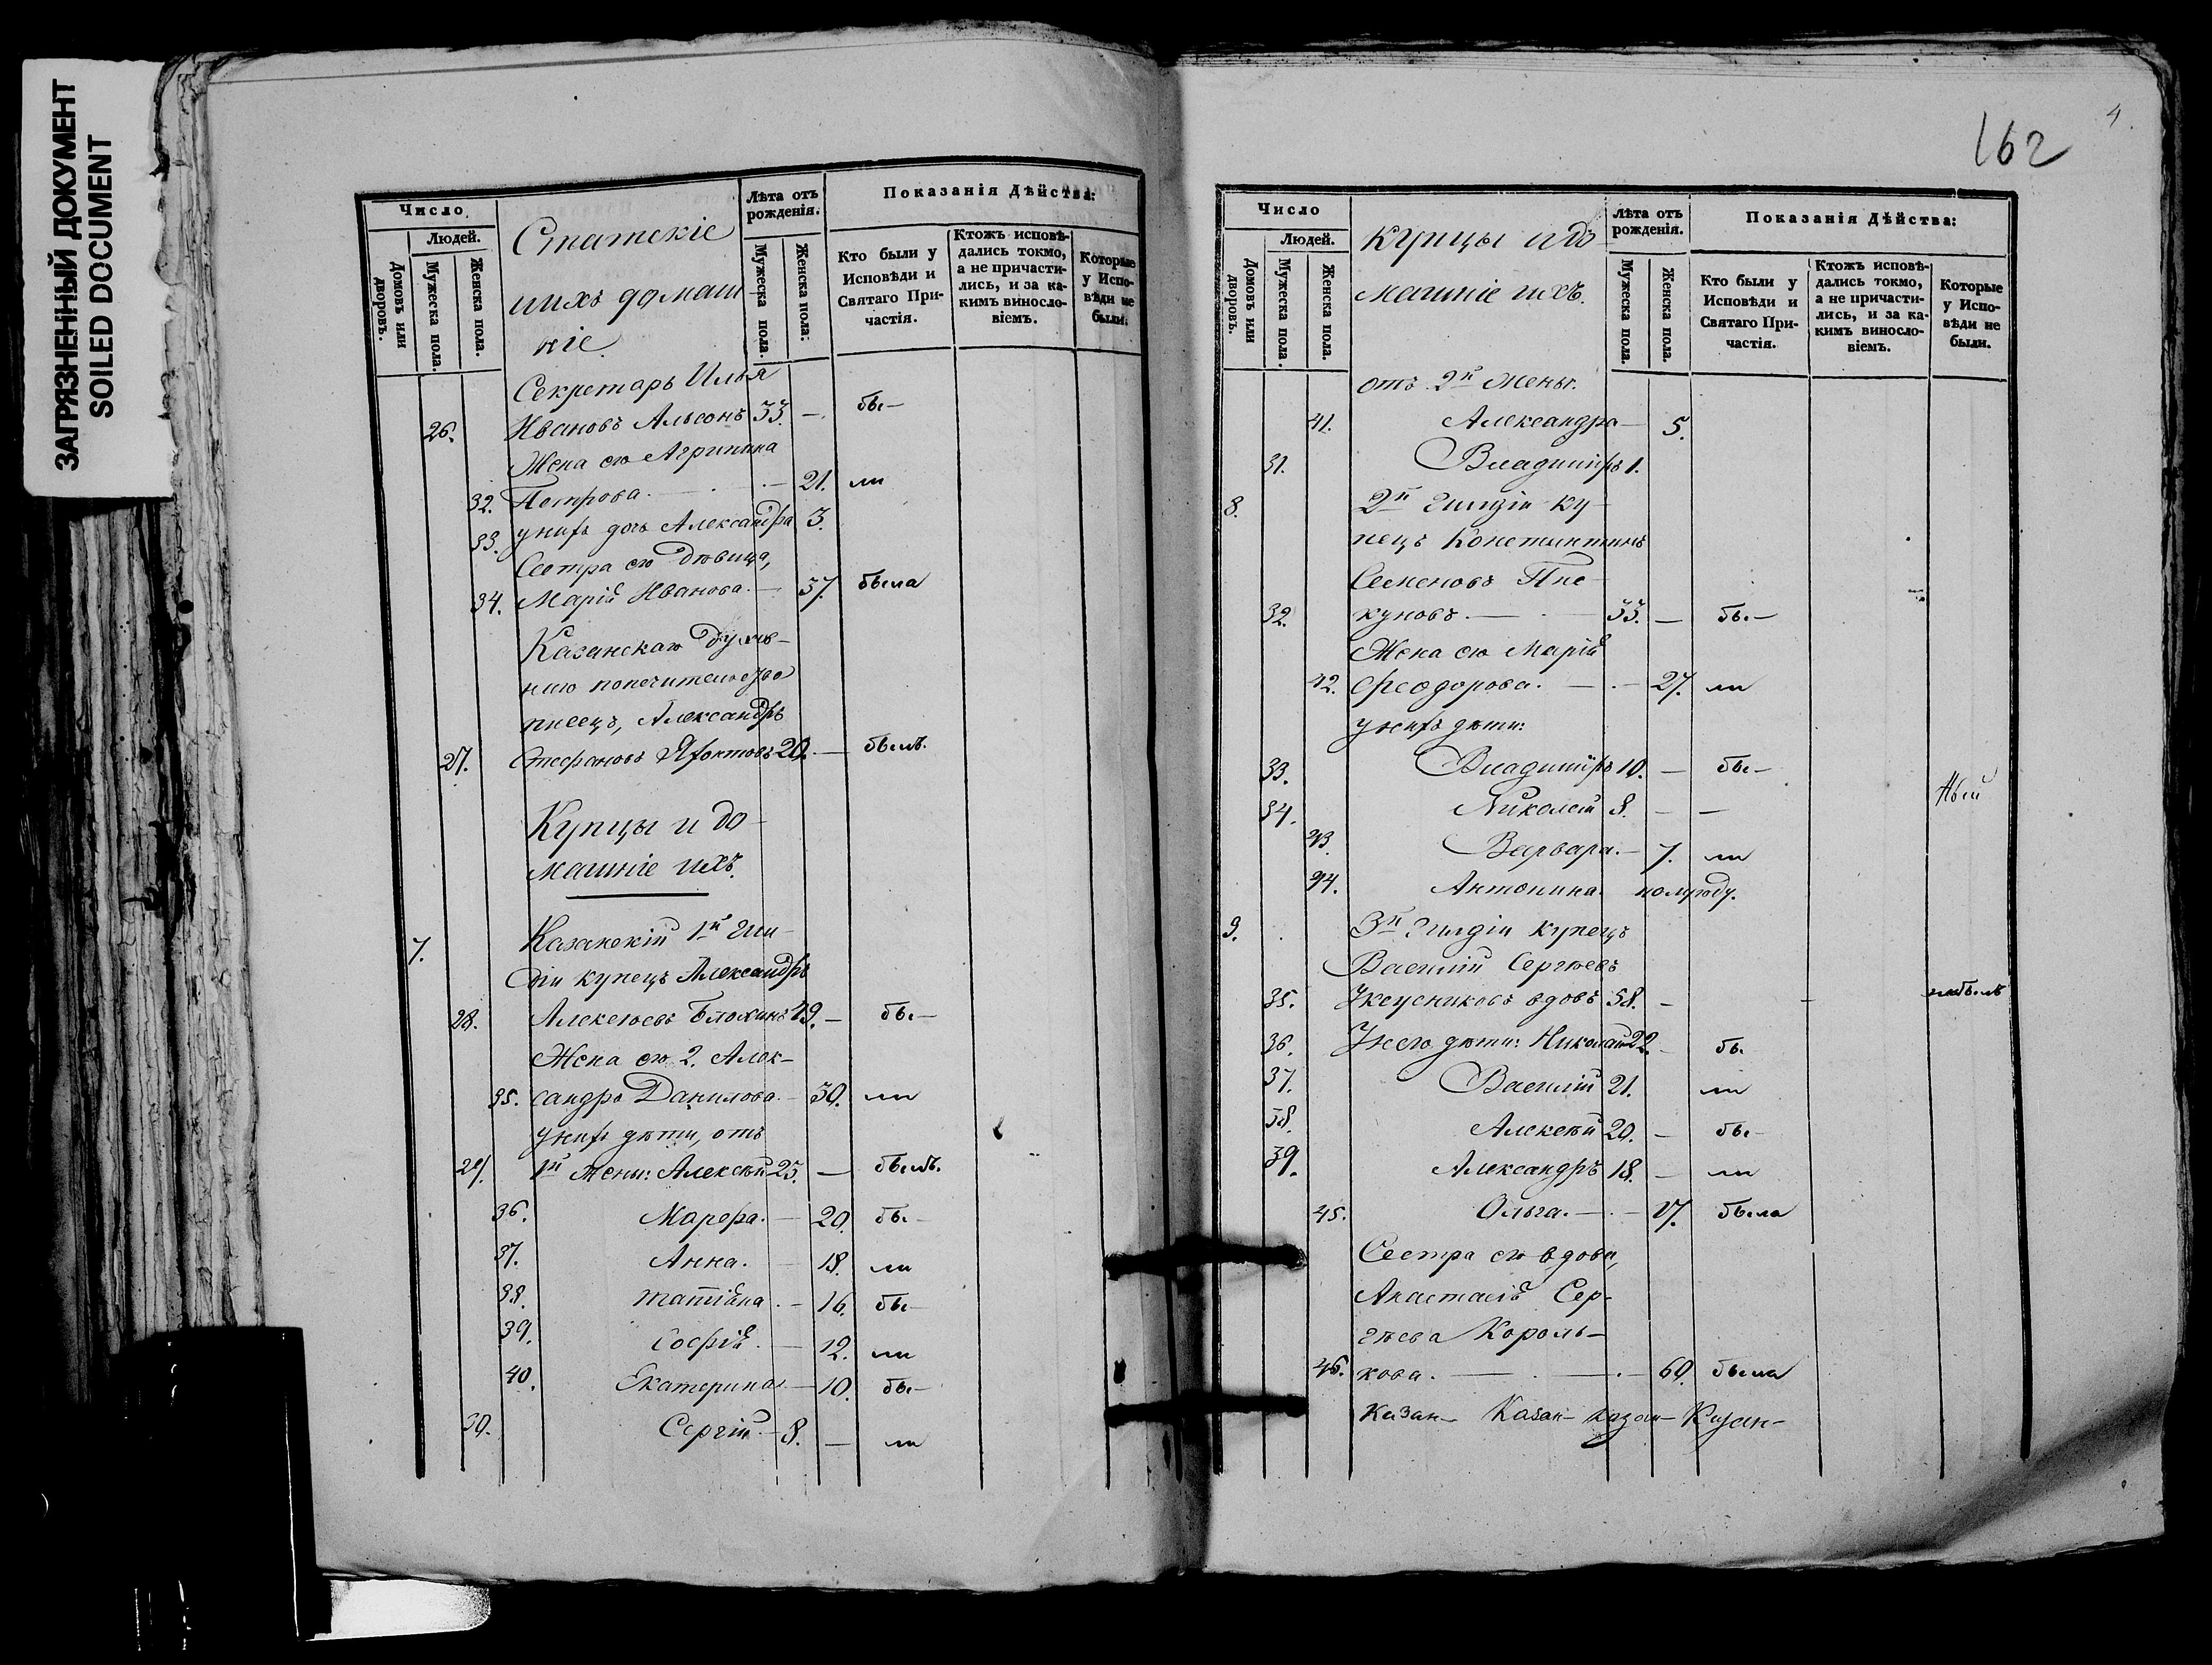 ЗАГРЯЗНЕННЫЙ ДОКУМЕНТ
SOILED DOCUMENT
Число
Людей.
Домовъ или дворовъ.
Мужеска пола.
Женска пола.
Статскіе
и ихъ домаш
ніе.
Лѣта отъ рожденія.
Мужеска пола.
Женска пола.
Показанія Дѣйства:
Кто были у Исповѣди и Святаго При-частія.
Ктожъ исповѣ-дались токмо, а не причасти-лись, и за ка-кимъ винос­ло-віемъ.
Которые у Испо-вѣди не были.
Секретарь Илья
26. Ивановъ Альсонъ 33. — бы—
Жена его Агрипина
32. Петрова. — 21. ли
33. у нихъ дочь Александра 3.
Сестра его дѣвица,
34. Марія Иванова. — 37. была
Казанскаго
попечительства
писецъ, Александръ
27. Стефановъ 20. — былъ.
Купцы и до-
машніе ихъ.
7. Казанскій 1й Гил-
діи купецъ Александръ
28. Алексѣевъ Блохинъ 49. — бы—
Жена его 2. Алек-
35. сандра Данилова. — 30. ли
у нихъ дѣти, отъ
29. 1й жены: Алексѣй 25. — былъ.
36. Марфа. — 20. бы—
37. Анна. — 18. ли
38. Татіана. — 16. бы—
39. Софія. — 12. ли
40. Екатерина. — 10. бы—
30. Сергій. — 8. — ли
162
4.
Число
Людей.
Домовъ или дворовъ.
Мужеска пола.
Женска пола.
Купцы и до-
машніе ихъ.
Лѣта отъ рожденія.
Мужеска пола.
Женска пола.
Показанія Дѣйства:
Кто были у Исповѣди и Святаго При-частія.
Ктожъ исповѣ-дались токмо, а не причасти-лись, и за ка-кимъ виносло-віемъ.
Которые у Испо-вѣди не были.
отъ 2й жены.
41. Александра — 5.
31. Владиміръ 1.
8. 2й Гилдіи ку-
пецъ Константинъ
Семеновъ Пче-
32. куновъ. — 33. — бы—
Жена его Марія
42. Феодорова. — 27. ли
у нихъ дѣти:
33. Владиміръ 10. — бы—
34. Николай 8. — —
43. Варвара. — 7. ли
44. Антонина. полугоду.
9. 3й Гилдіи купецъ
Василій Сергѣевъ
35. Уксусниковъ вдовъ 58. — небылъ
36. У него дѣти: Николай 22. — бы
37. Василій 21. ли
38. Алексѣй 20. — бы—
39. Александръ 18. — ли
45. Ольга. — 27. была
Сестра его вдова,
Анастасія Сер-
гѣева Король-
46. кова. — 60. была
Казан— Казан— казан— Казан—